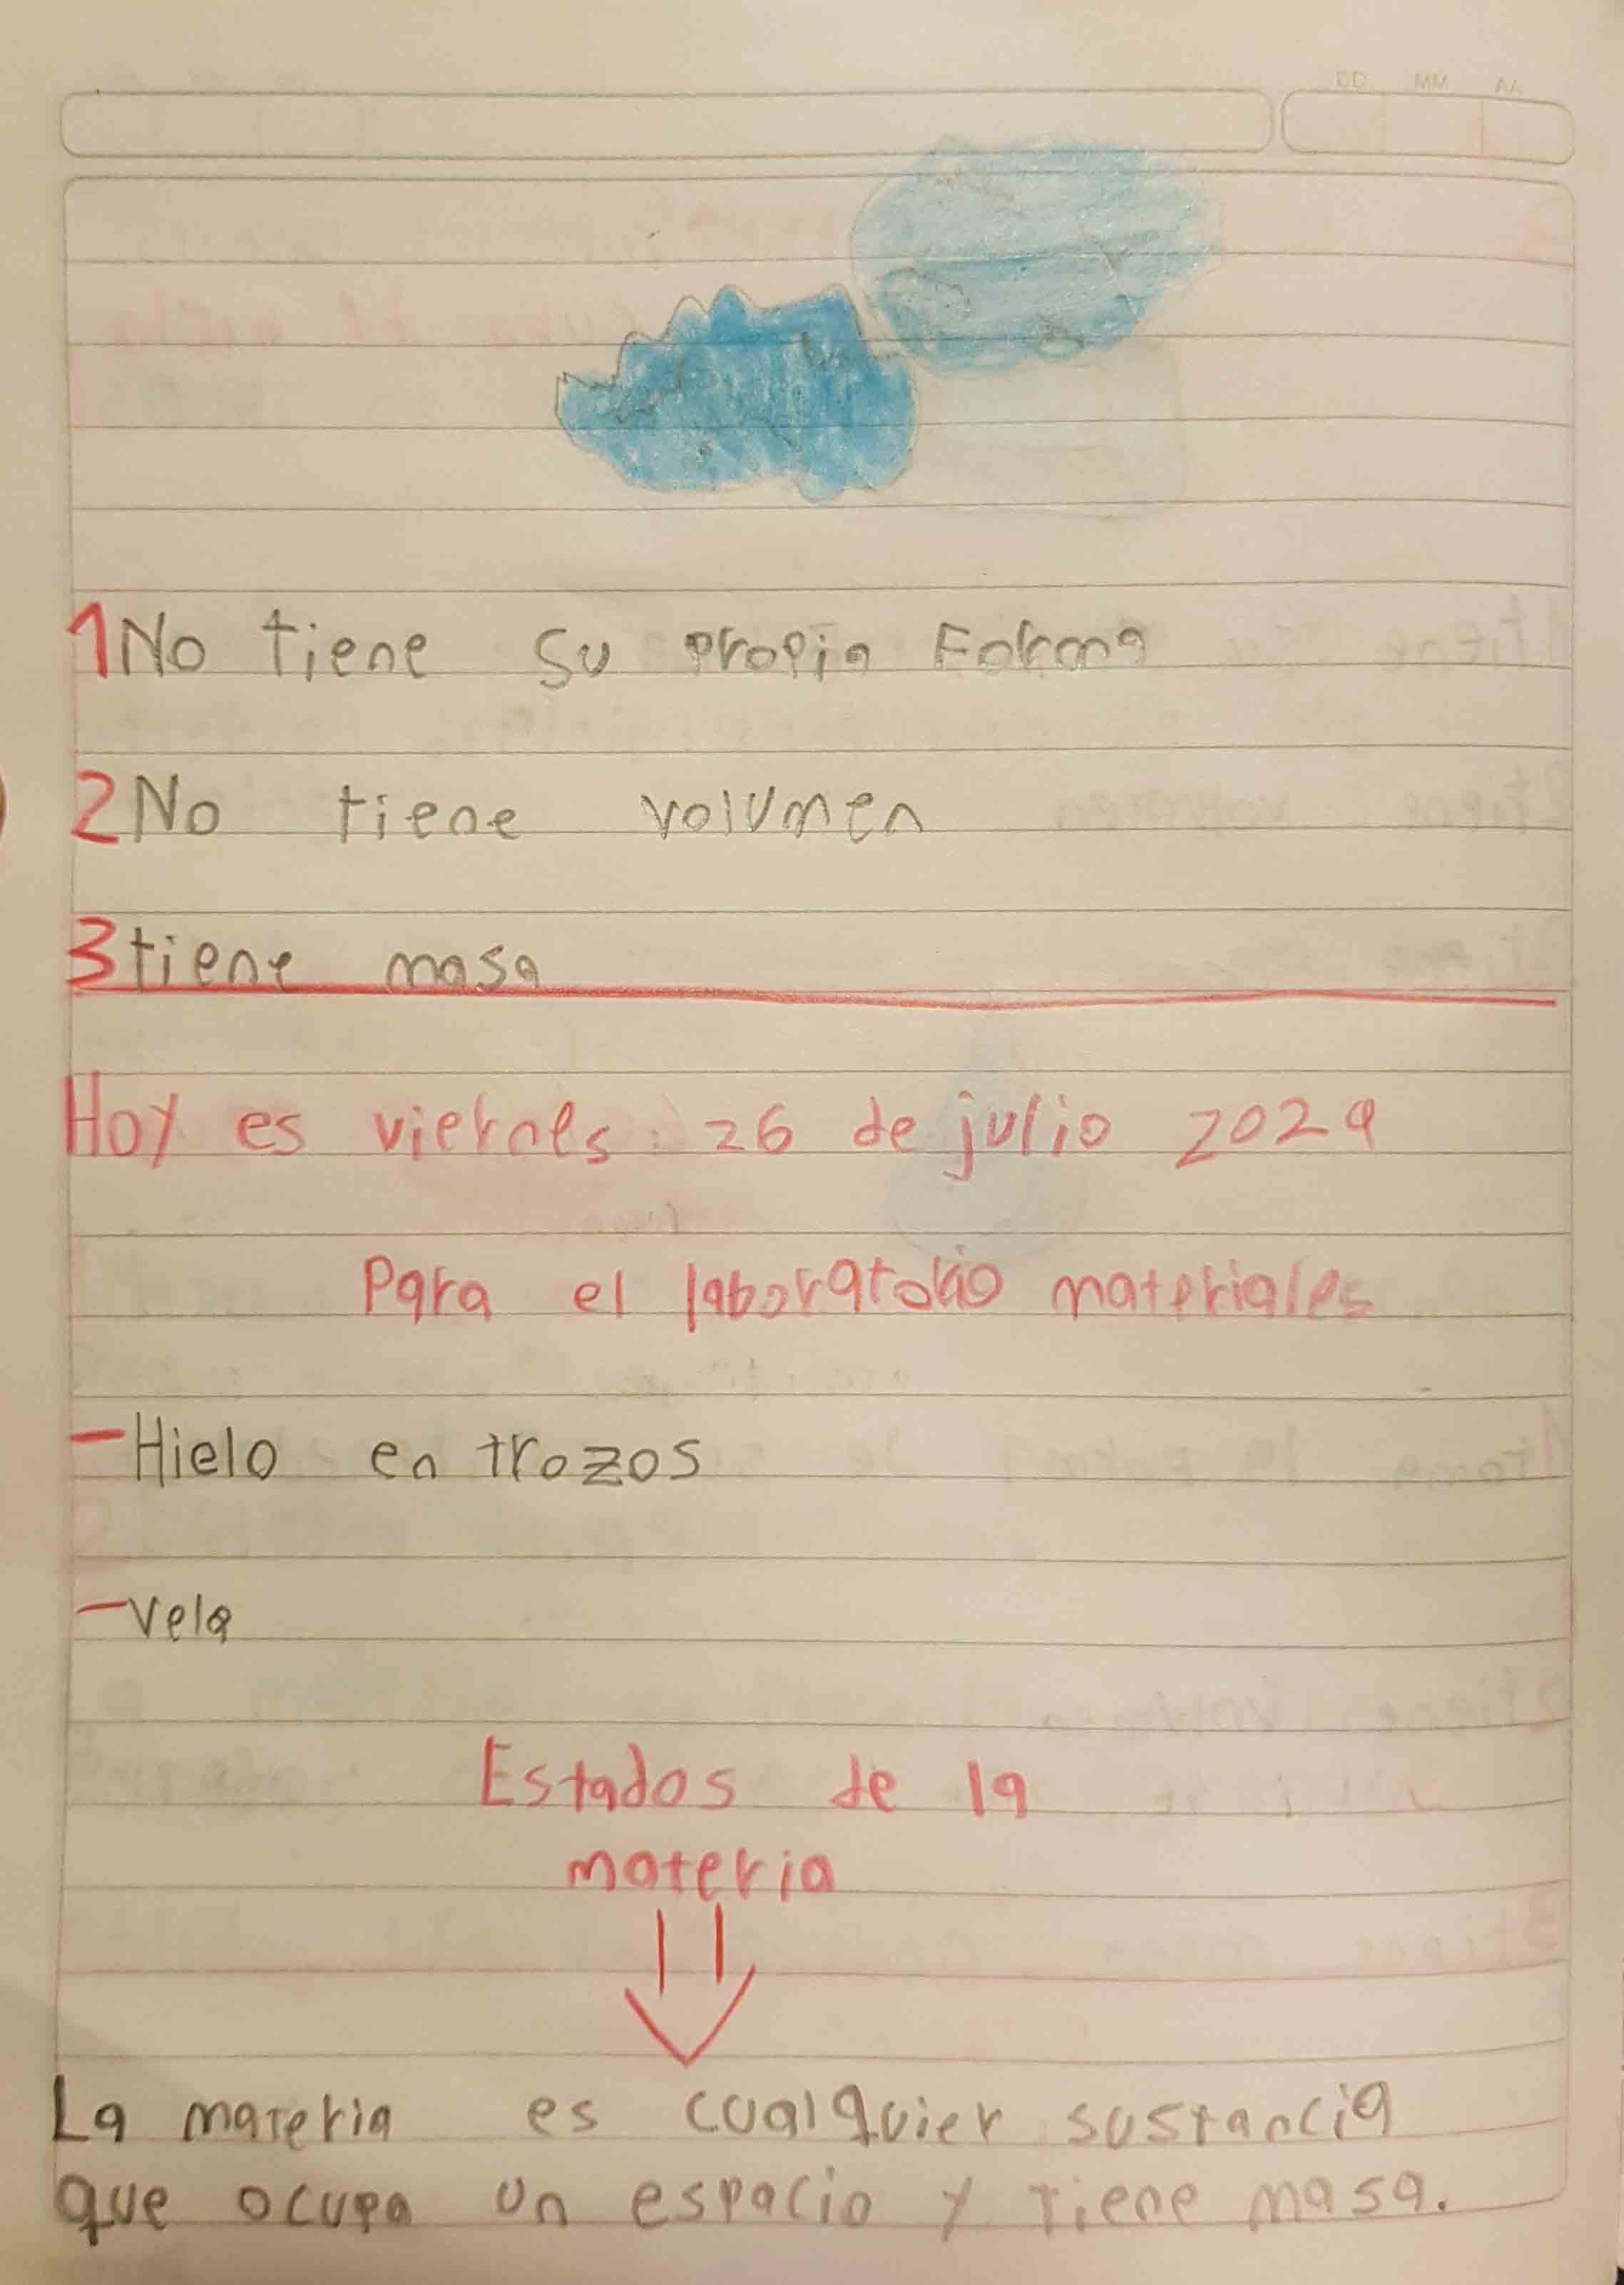 DD MM AA
1 No tiene su propia Forma
2 No tiene volumen
3 tiene masa
Hoy es viernes 26 de julio 2024
Para el laboratorio materiales
- Hielo en trozos
- Vela
Estados de la
materia
La materia es cualquier sustancia
que ocupa un espacio y tiene masa.